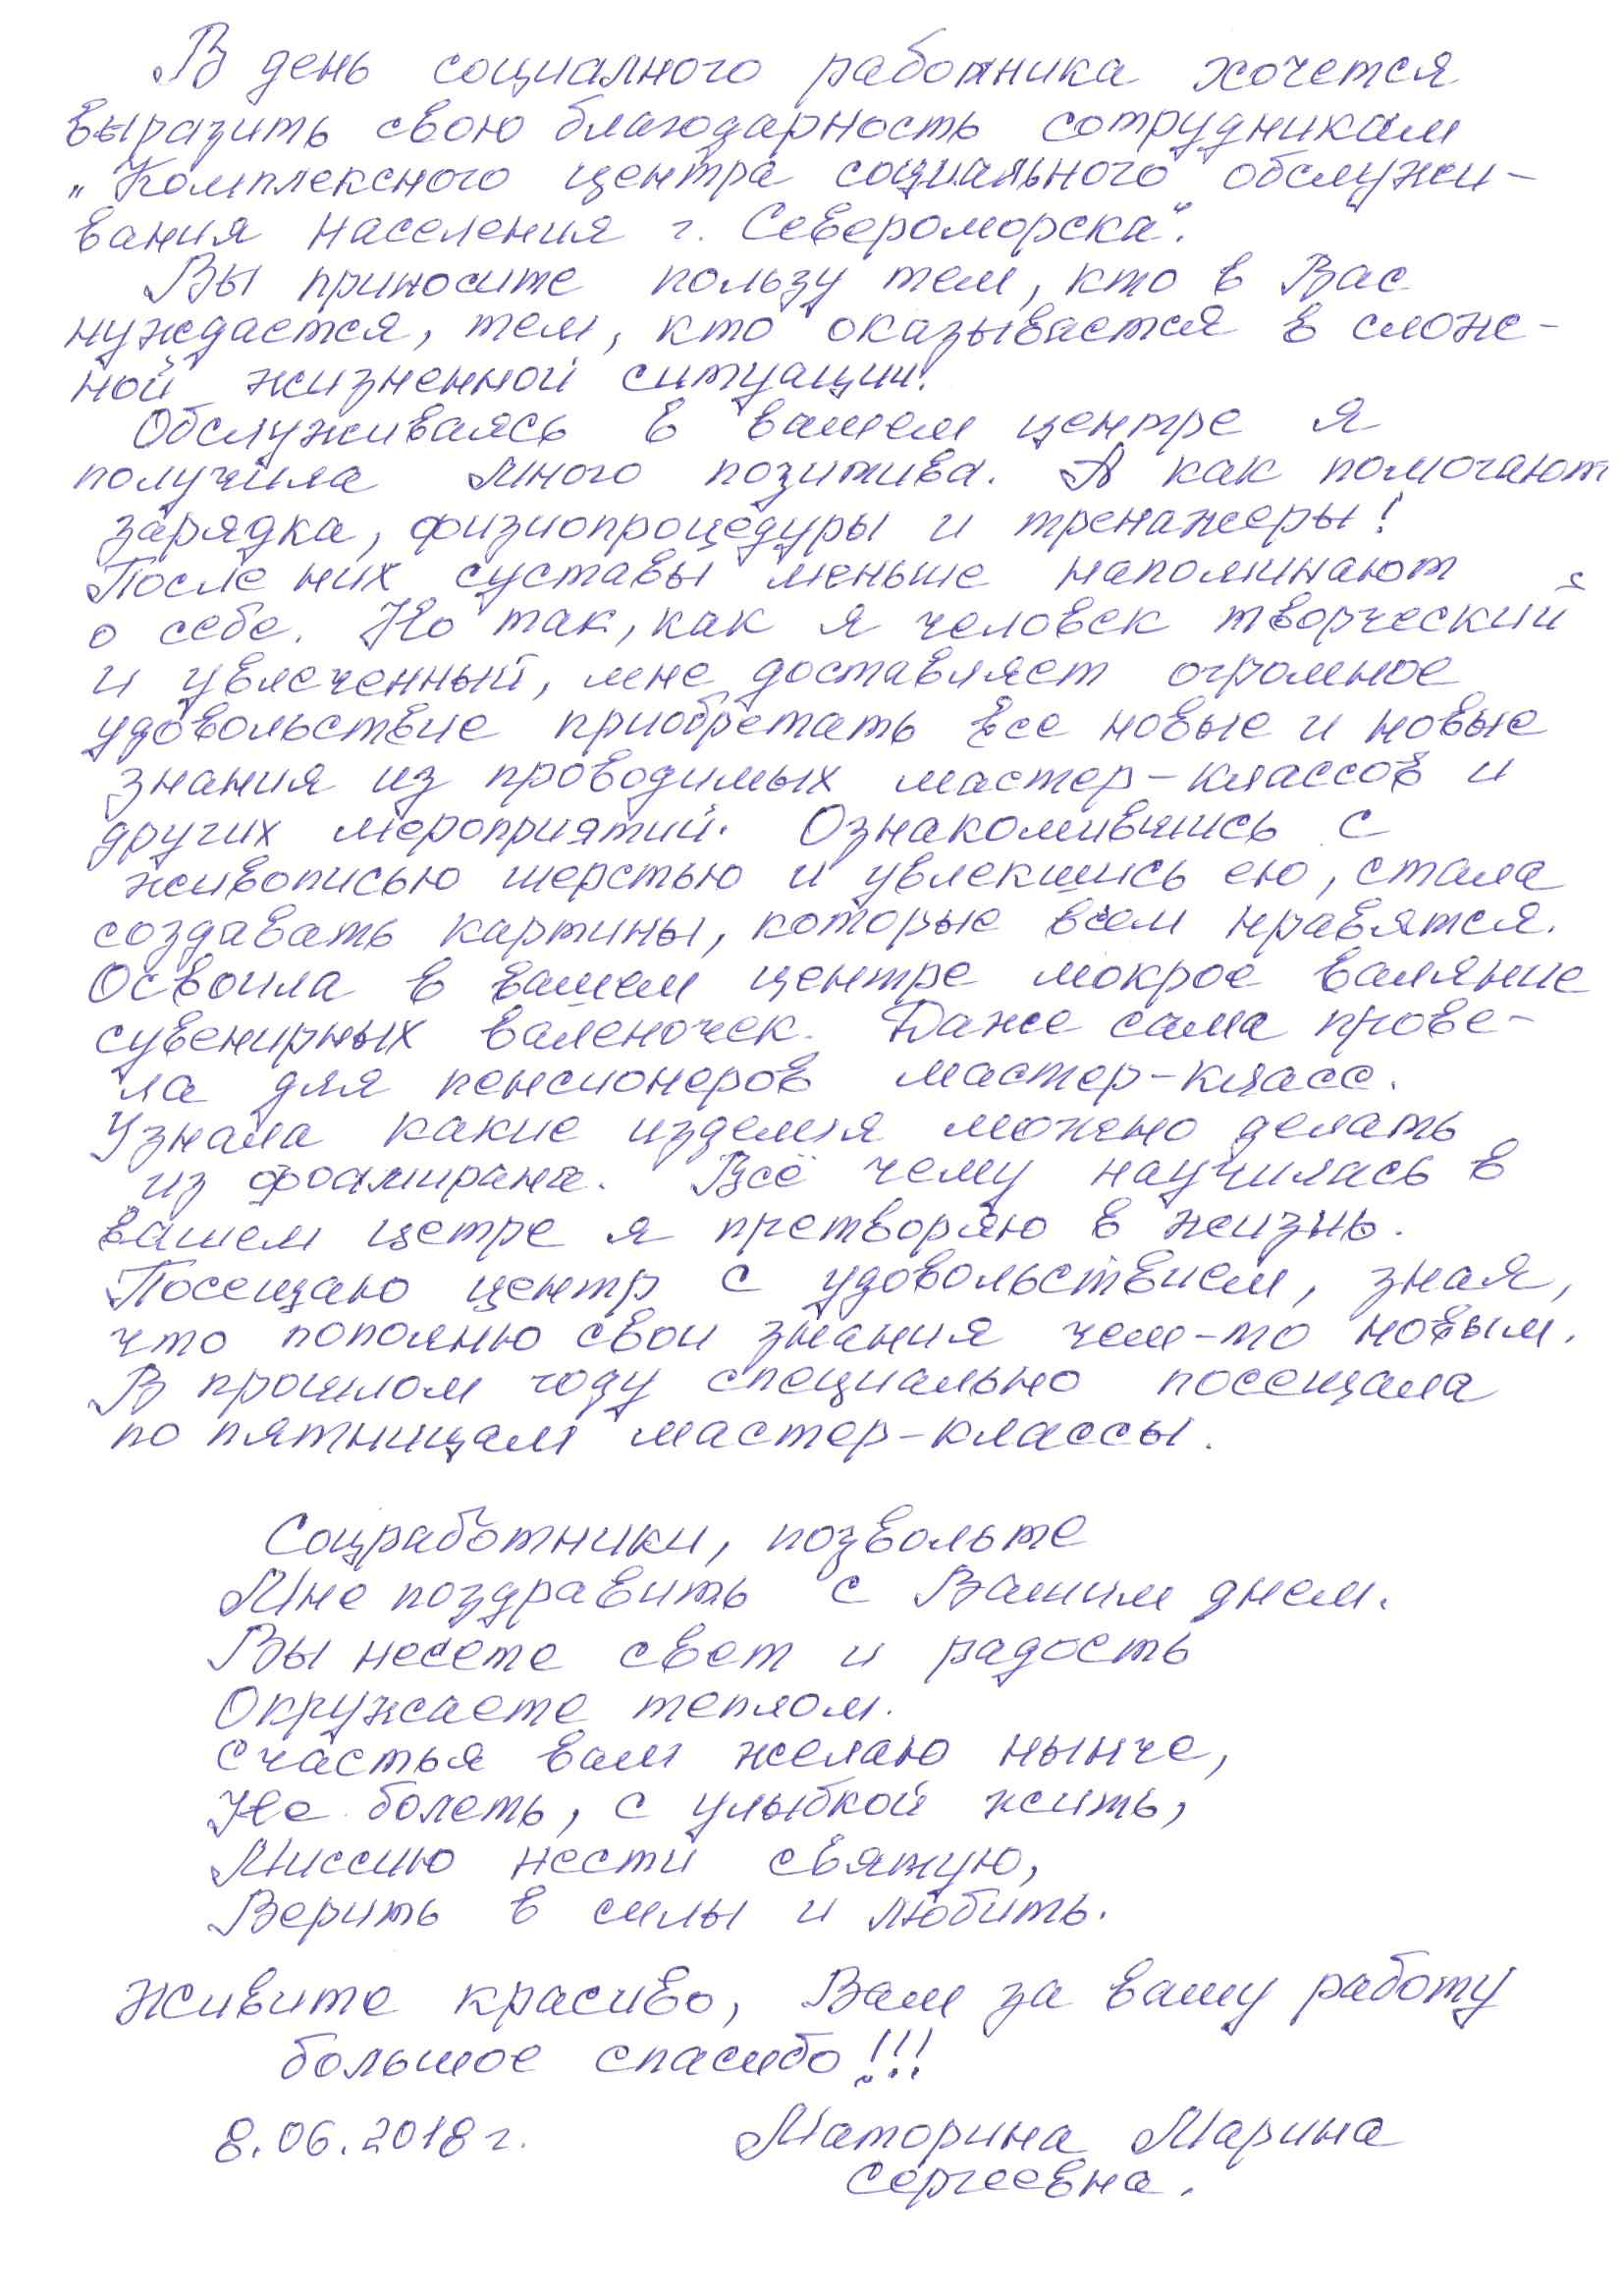 В день социалного работника хочется
выразить свою благодарность сотрудникам
„Комплексного центра социального обслужи-
вания населения г. Североморска".
Вы приносите пользу тем, кто в Вас
нуждается, тем, кто оказывается в слож-
ной жизненной ситуации.
Обслуживаясь в вашем центре я
получила много позитива. А как помогают
зарядка, физиопроцедуры и тренажеры!
После них суставы меньше напоминают
о себе. Но так, как я человек творческий
и увлеченный, мне доставляет огромное
удовольствие приобретать все новые и новые
знания из проводимых мастер-классов и
других мероприятий. Ознакомившись с
живописью шерстью и увлекшись ею, стала
создавать картины, которые всем нравятся.
Освоила в вашем центре мокрое валяние
сувенирных валеночек. Даже сама прове-
ла для пенсионеров мастер-класс.
Узнала какие изделия можно делать
из фоамирана. Всё чему научилась в
вашем цетре я претворяю в жизнь.
Посещаю центр с удовольствием, зная,
что пополню свои знания чем-то новым.
В прошлом году специально посещала
по пятницам мастер-классы.
Соцработники, позвольте
Мне поздравить с Вашим днем.
Вы несете свет и радость
Окружаете теплом.
Счастья вам желаю нынче,
Не болеть, с улыбкой жить,
Миссию нести святую,
Верить в силы и любить.
Живите красиво, Вам за вашу работу
большое спасибо!!!
8.06.2018 г. Маторина Марина
Сергеевна.